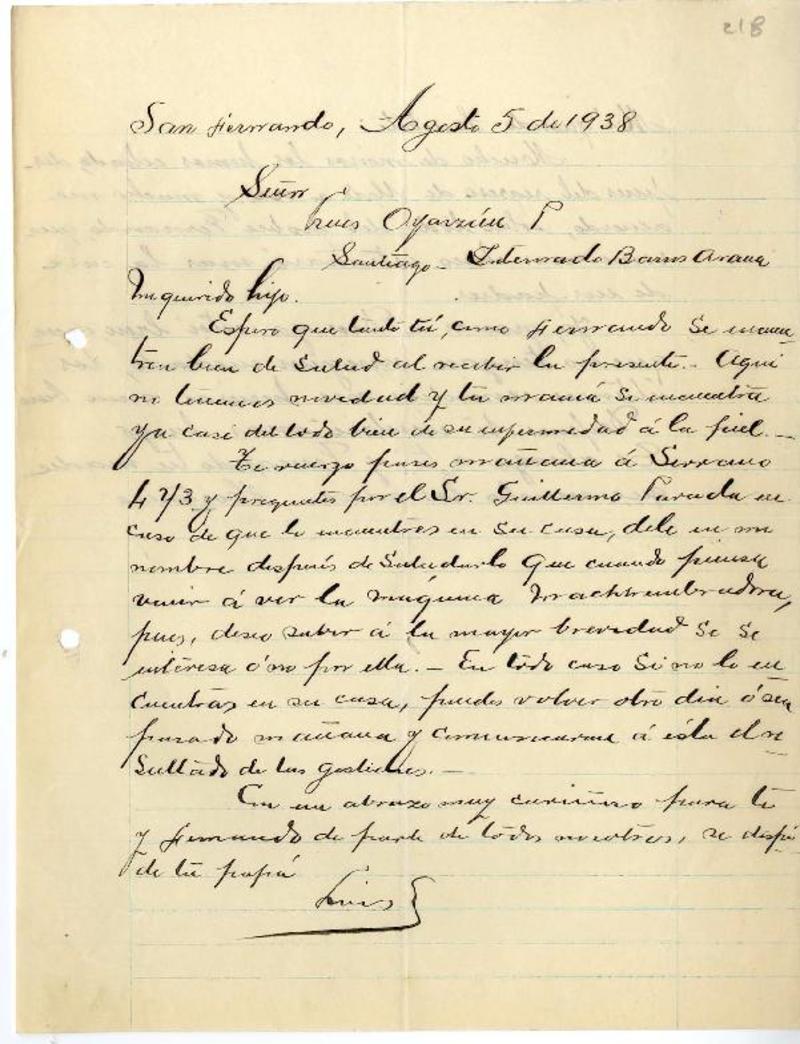 218
San Fernando, Agosto 5 de 1938
Señor
Luis Oyarzún P
Santiago - Internado Barros Arana
Mi querido hijo.
Espero que tanto tú, como Fernando se encuen
tren bien de salud al recibir la presente.- Aquí
no tenemos novedad y tu mamá se encuentra
ya casi del todo bien de su enfermedad á la piel.-
Te ruego pases mañana á Serrano
473 y preguntes por el Sr. Guillermo Parada en
caso de que lo encuentres en su casa, dile en mi
nombre después de saludarlo que cuando piensa
venir á ver la máquina machihembradora,
pues, deseo saber á la mayor brevedad si se
interesa ó no por ella.- En todo caso si no lo en
cuentras en su casa, puedes volver otro dia ó sea
pasado mañana y comunicarme á ésta el re
sultado de tus gestiones.-
Con un abrazo muy cariñoso para ti
y Fernando de parte de todos nosotros, se despi
de tu papá
Luis